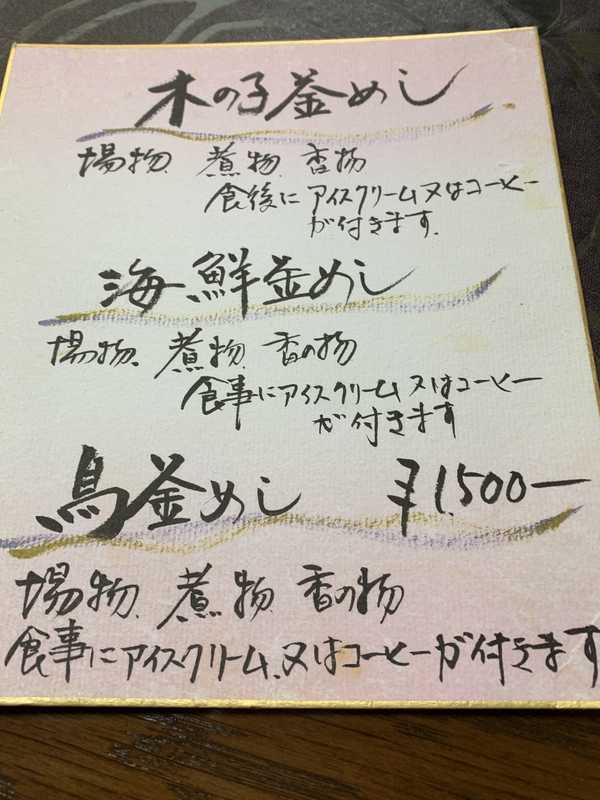 木の子釜めし
場物、煮物、香物
食後にアイスクリーム又はコーヒー
が付きます。
海鮮釜めし
場物、煮物、香の物
食事にアイスクリーム又はコーヒー
が付きます
鳥釜めし ¥1,500ー
場物、煮物、香の物
食事にアイスクリーム、又はコーヒーが付きます